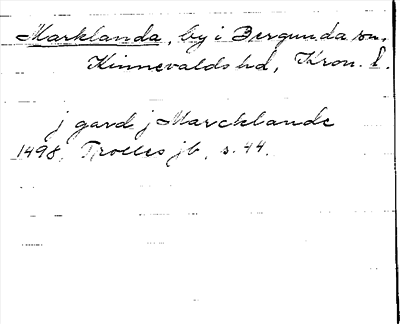 Marklanda, by i Bergunda sn,
Kinnevalds hd, Kron. l.
j gard j Marcklande
1498. Trolles jb, s. 44.